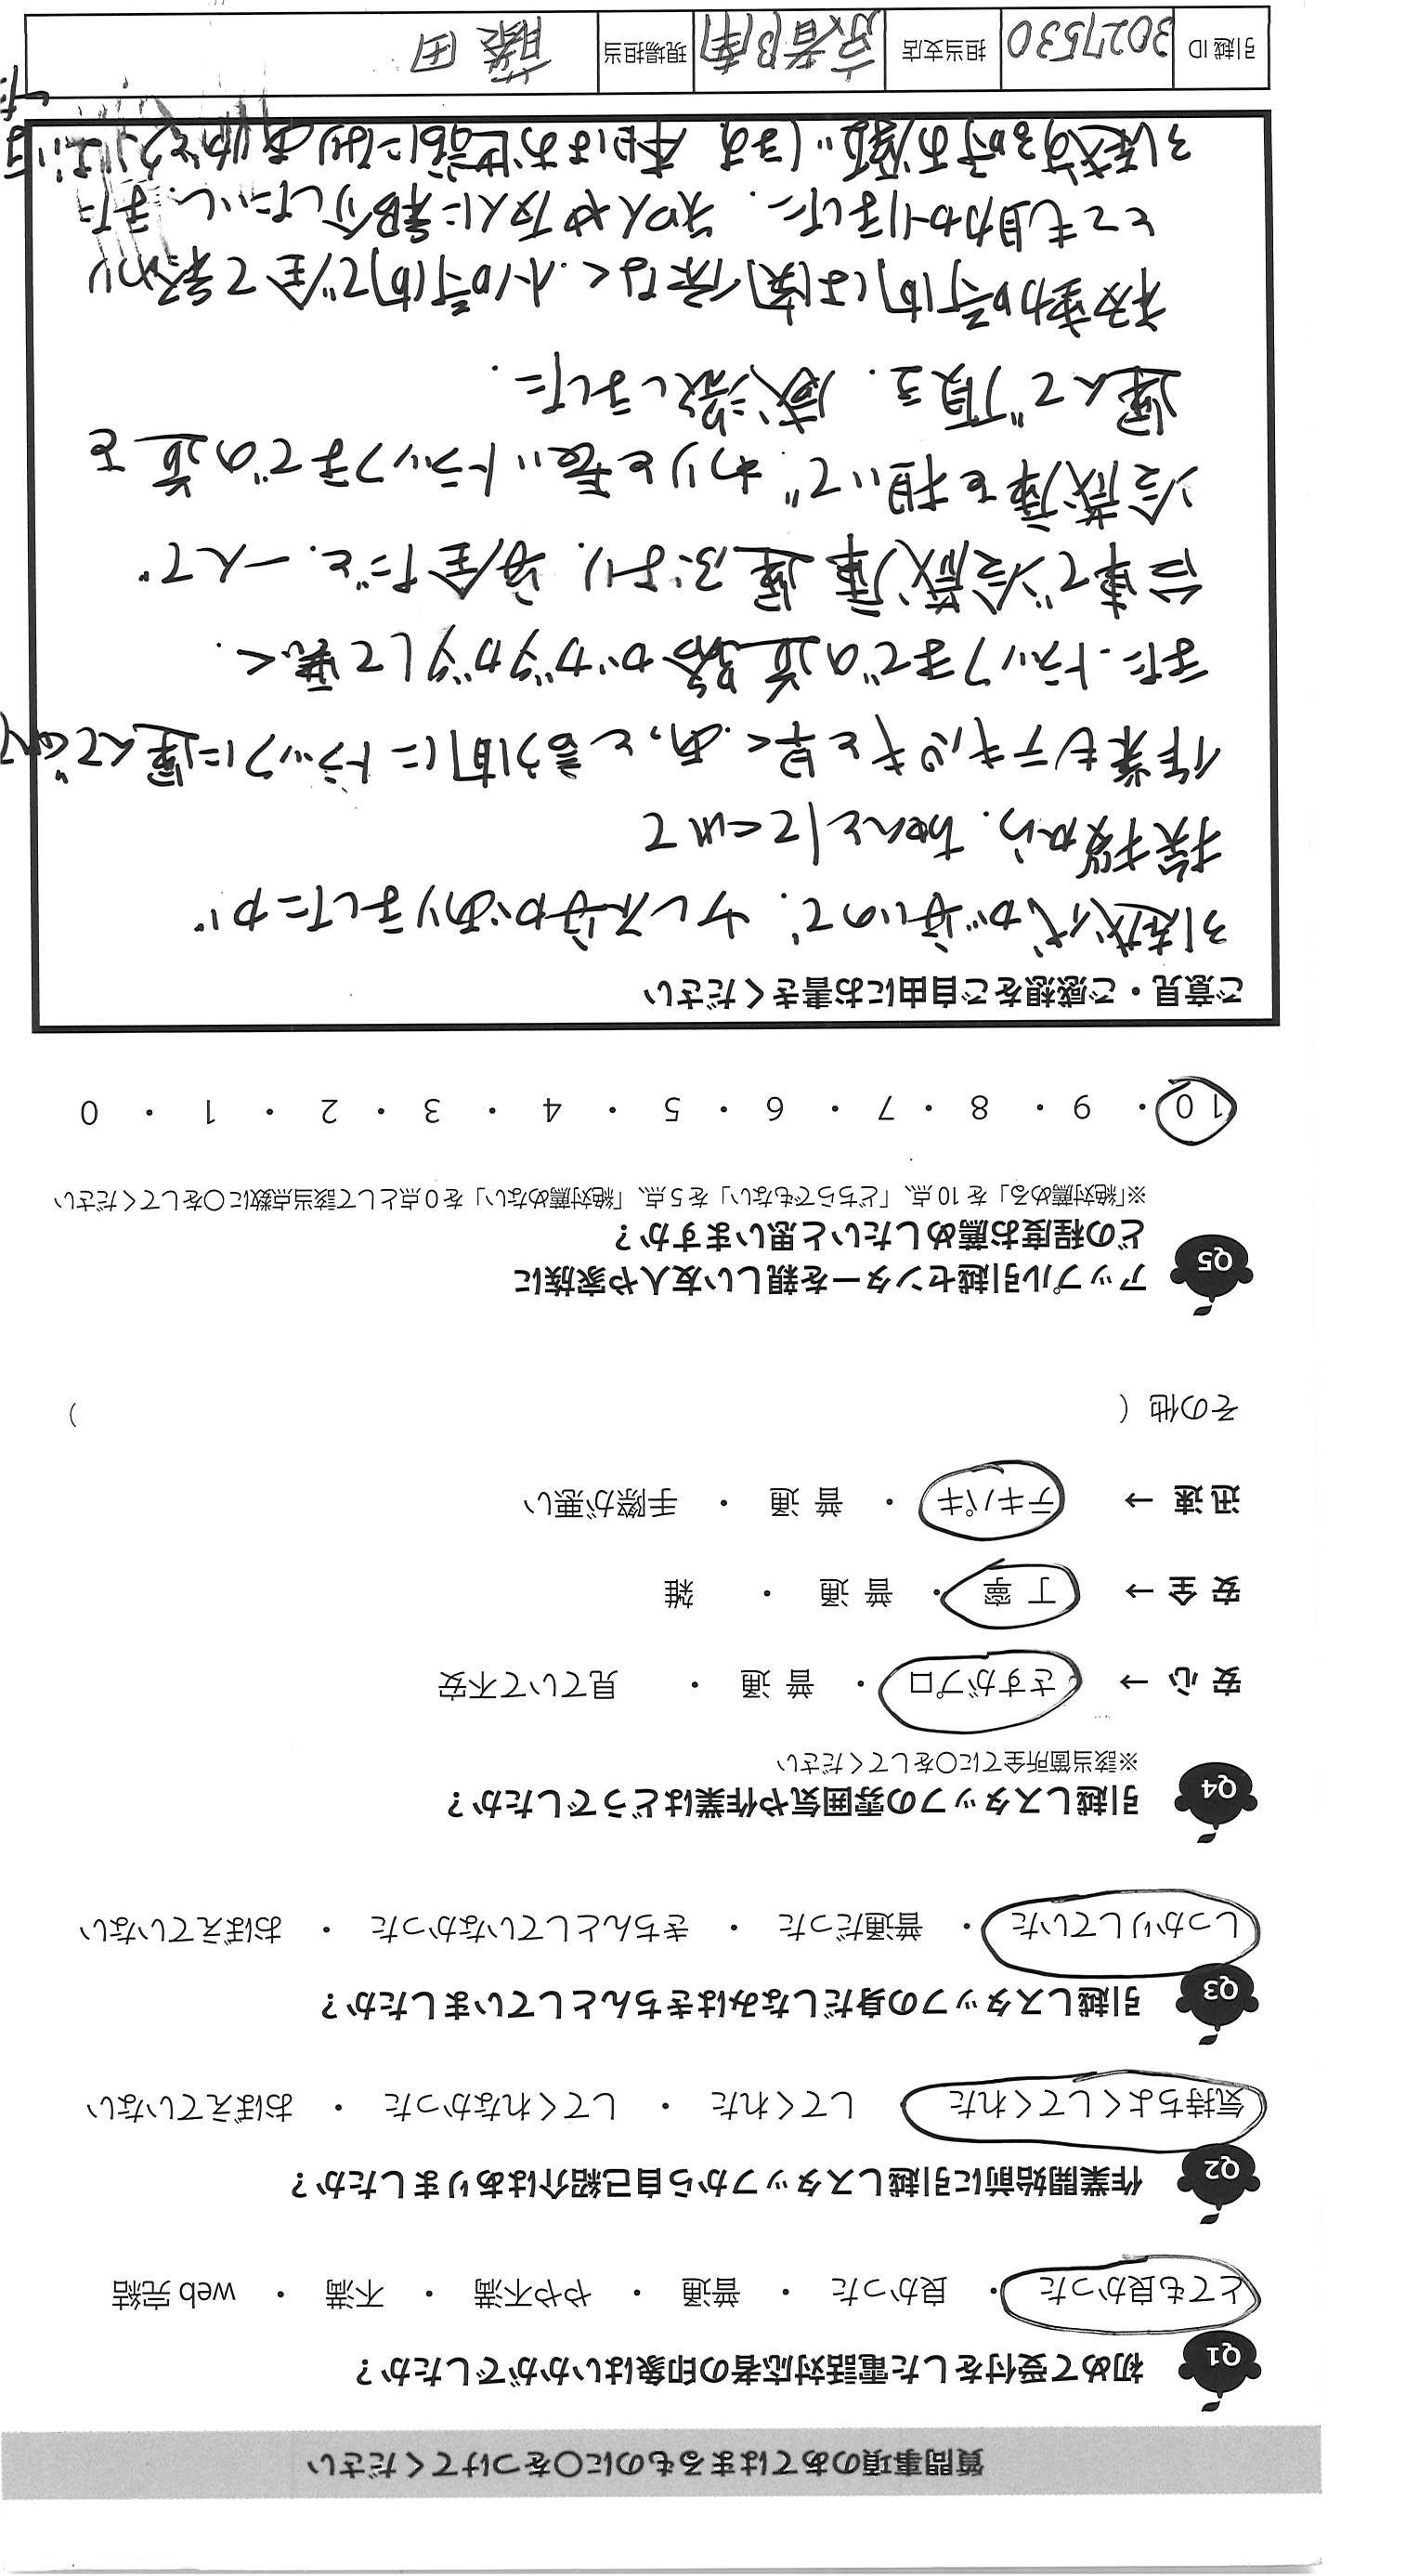 質問事項のあてはまるものに〇をつけてください
Q1 初めて受付をした電話対応者の印象はいかがでしたか？
とても良かった ・ 良かった ・ 普通 ・ やや不満 ・ 不満 ・ web 完結
Q2 作業開始前に引越しスタッフから自己紹介はありましたか？
気持ちよくしてくれた ・ してくれた ・ してくれなかった ・ おぼえていない
Q3 引越しスタッフの身だしなみはきちんとしていましたか？
しっかりしていた ・ 普通だった ・ きちんとしていなかった ・ おぼえていない
Q4 引越しスタッフの雰囲気や作業はどうでしたか？
※該当箇所全てに〇をしてください
安 心 → さすがプロ ・ 普 通 ・ 見ていて不安
安 全 → 丁 寧 ・ 普 通 ・ 雑
迅 速 → テキパキ ・ 普 通 ・ 手際が悪い
その他 （ ）
Q5 アップル引越センターを親しい友人や家族に
どの程度お薦めしたいと思いますか？
※「絶対薦める」を 10 点、「どちらでもない」を 5 点、「絶対薦めない」を 0 点として該当点数に〇をしてください
10 ・ 9 ・ 8 ・ 7 ・ 6 ・ 5 ・ 4 ・ 3 ・ 2 ・ 1 ・ 0
ご意見・ご感想をご自由にお書きください
引越代が安いので、少し不安がありましたが
挨拶から、ちゃんとしていて
作業もテキパキと早く、あっと言う間にトラックに運んで
また、トラックまでの道路がガタガタして悪く、
台車で冷蔵庫運ぶより、安全だと、一人で
冷蔵庫を担いで、わりと長いトラックまでの道を
運んで頂き、感激しました.
移動時間は関係なく、小1時間で全て終わり
とても助かりました. 知人や友人に紹介したいし、また
引越する時お願いします 本日はお世話になりありがとう
ございました
引越 ID 3027530 担当支店 京都南 現場担当 藤田